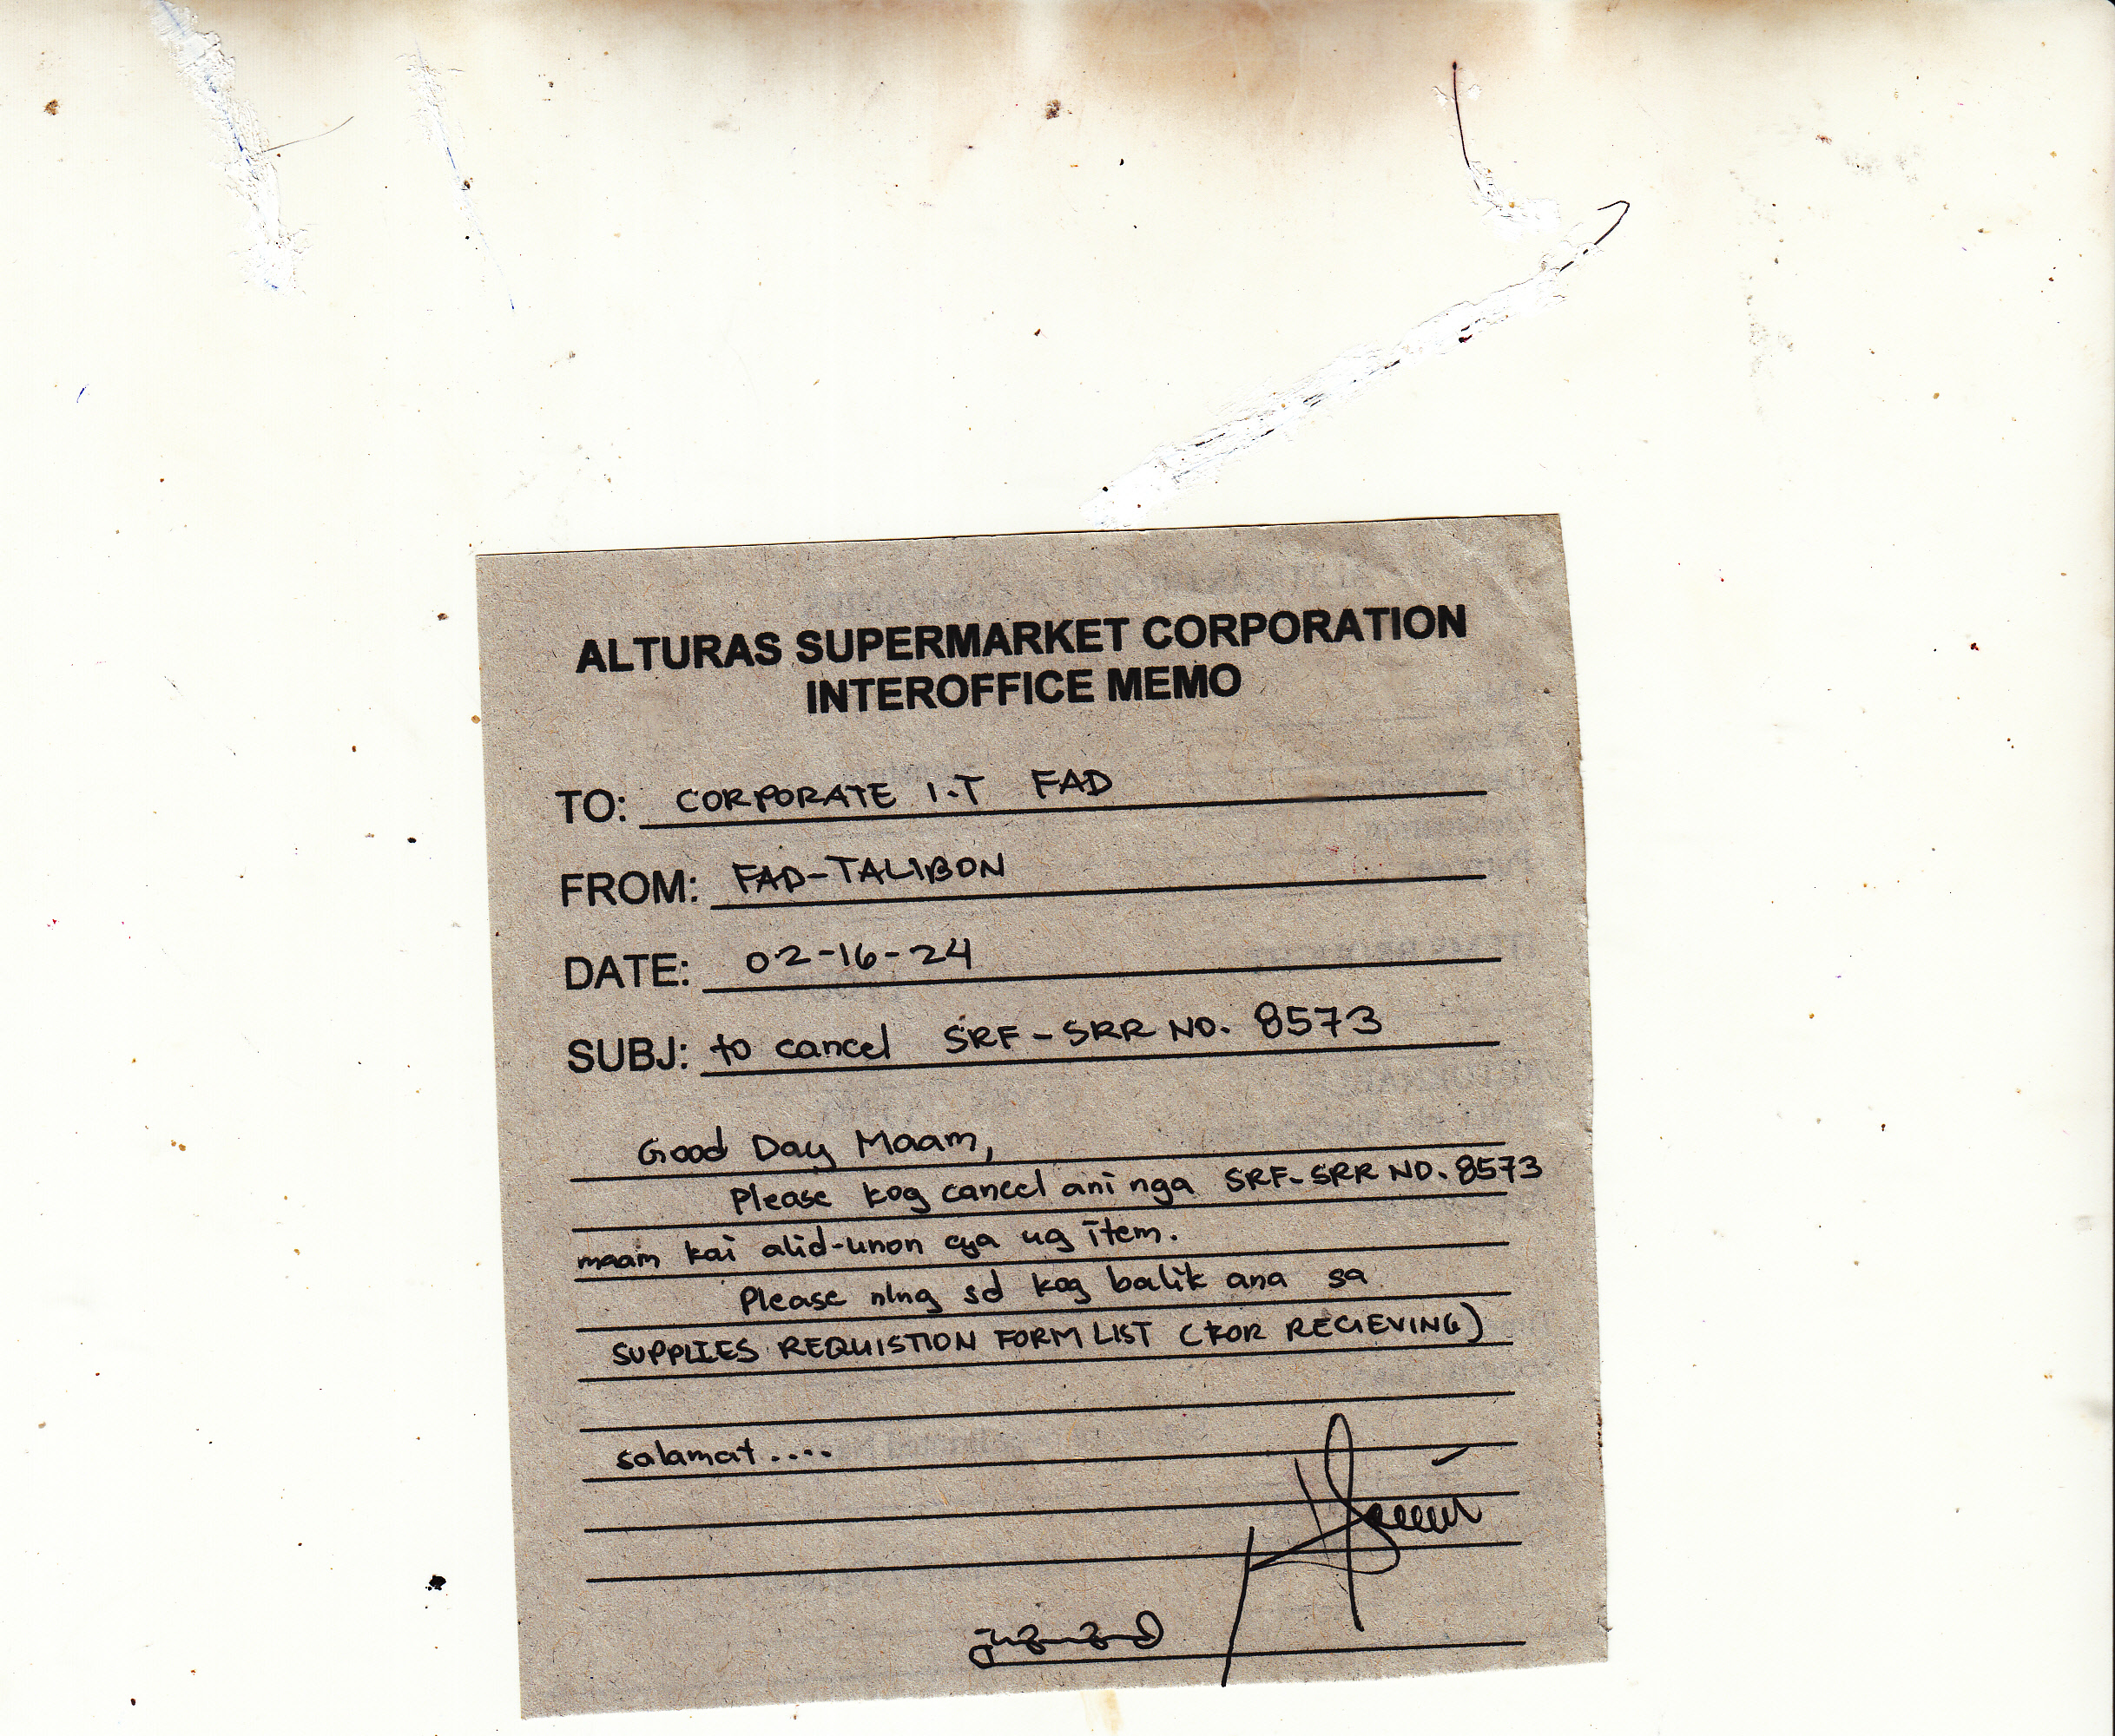 ALTURAS SUPERMARKET CORPORATION
INTEROFFICE MEMO
TO: CORPORATE I.T FAD
FROM: FAD-TALIBON
DATE: 02-16-24
SUBJ: to cancel SRF-SRR NO. 8573
Good Day Maam,
Please kog cancel ani nga SRF-SRR NO. 8573
maam kai alid-unon cya ug item.
Please nlng sd kog balik ana sa
SUPPLIES REQUISTION FORM LIST (FOR RECIEVING)
salamat....